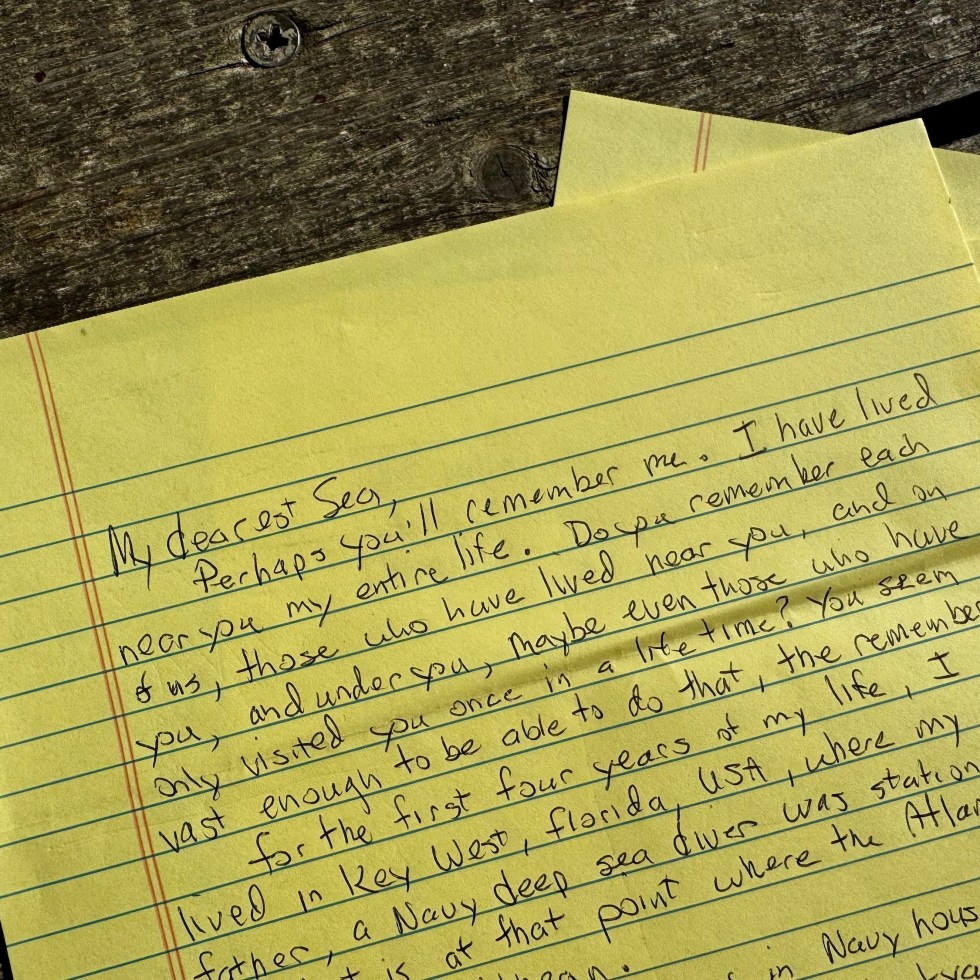 My dearest Sea,
Perhaps you'll remember me. I have lived
near you my entire life. Do you remember each
of us, those who have lived near you, and on
you, and under you, maybe even those who have
only visited you once in a life time? You seem
vast enough to be able to do that, the remembe
for the first four years of my life, I
lived in Key West, Florida, USA, where my
father, a Navy deep sea diver was station
is at that point where the Atlan
in Navy hous